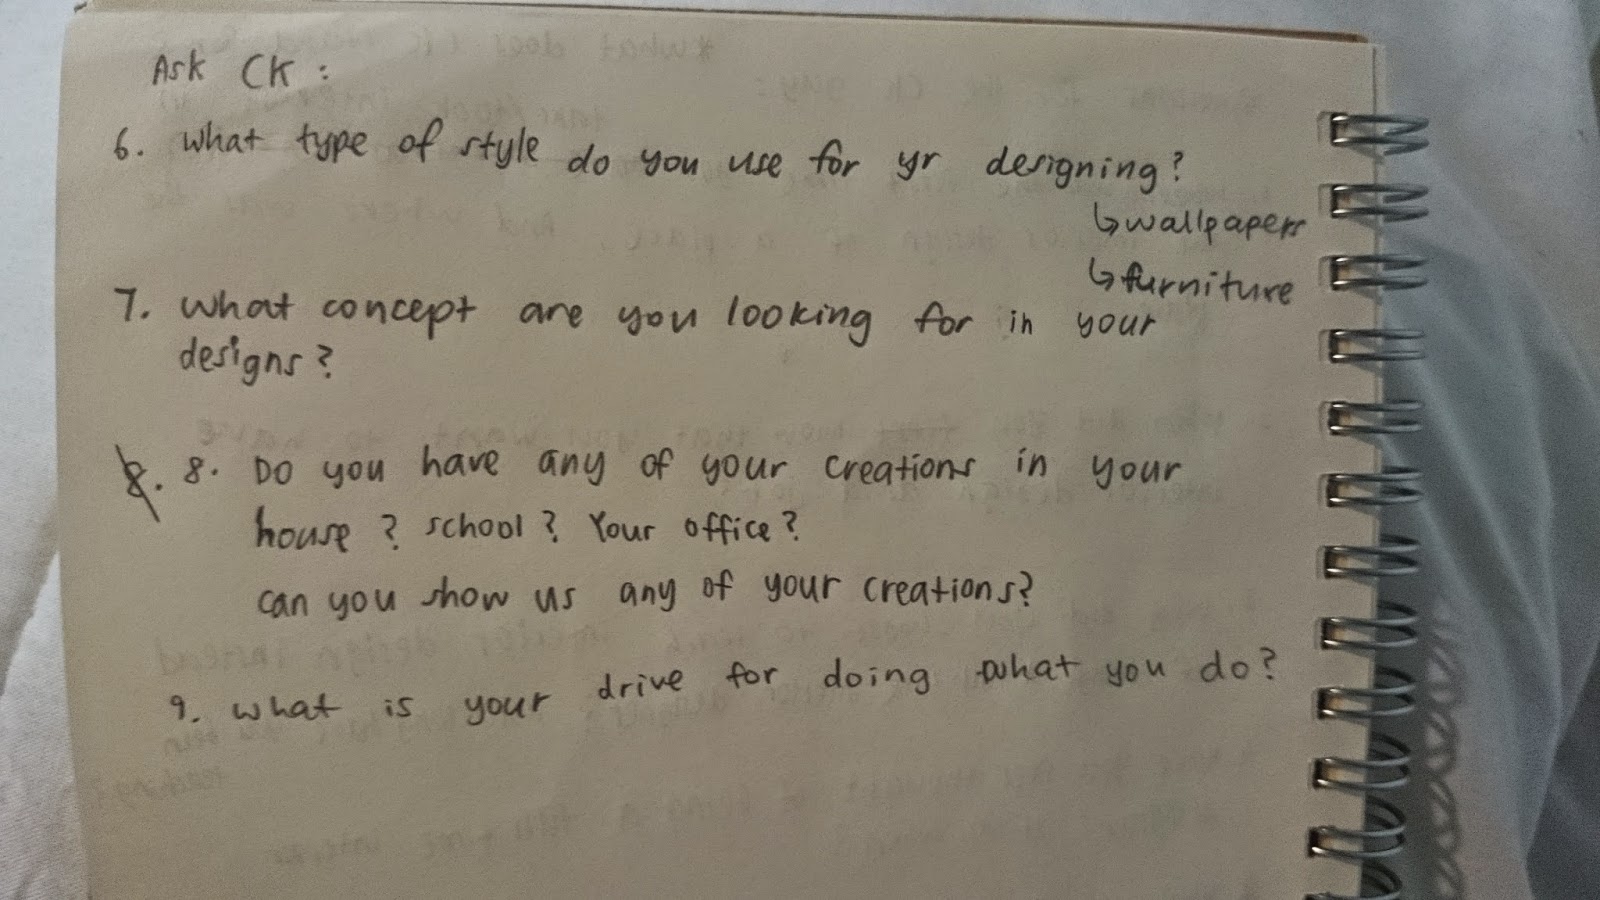 Ask CK :
6. What type of style do you use for yr designing?
↳ wallpapers
↳ furniture
7. What concept are you looking for in your
designs?
8. Do you have any of your creations in your
house ? school ? Your office ?
can you show us any of your creations?
9. What is your drive for doing what you do?